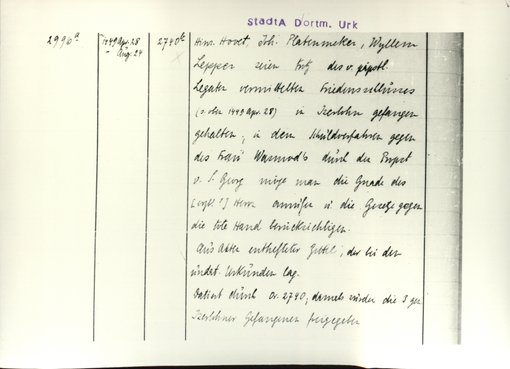 StadtA Dortm. Urk
2990a 1449 Apr. 28 2740a Hinr. Hovet, Joh. Platenmeker, Wyllem
- Aug. 24 Lepper seien trotz des v. päpstl.
Legaten vermittelten Friedensschlusses
(s. oben 1449 Apr. 28) in Iserlohn gefangen
gehalten; in dem Schuldverfahren gegen
des Frau durch den Propst
v. S. Georg möge man die Gnade des
Herrn anrufen u die Gesetze gegen
die tote Hand berücksichtigen.
Aus Akten entnommener Zettel, der bei den
undat. Urkunden lag.
Datiert durch Or. 2740; damals würden die 3 gen
Iserlohner Gefangenen freigegeben